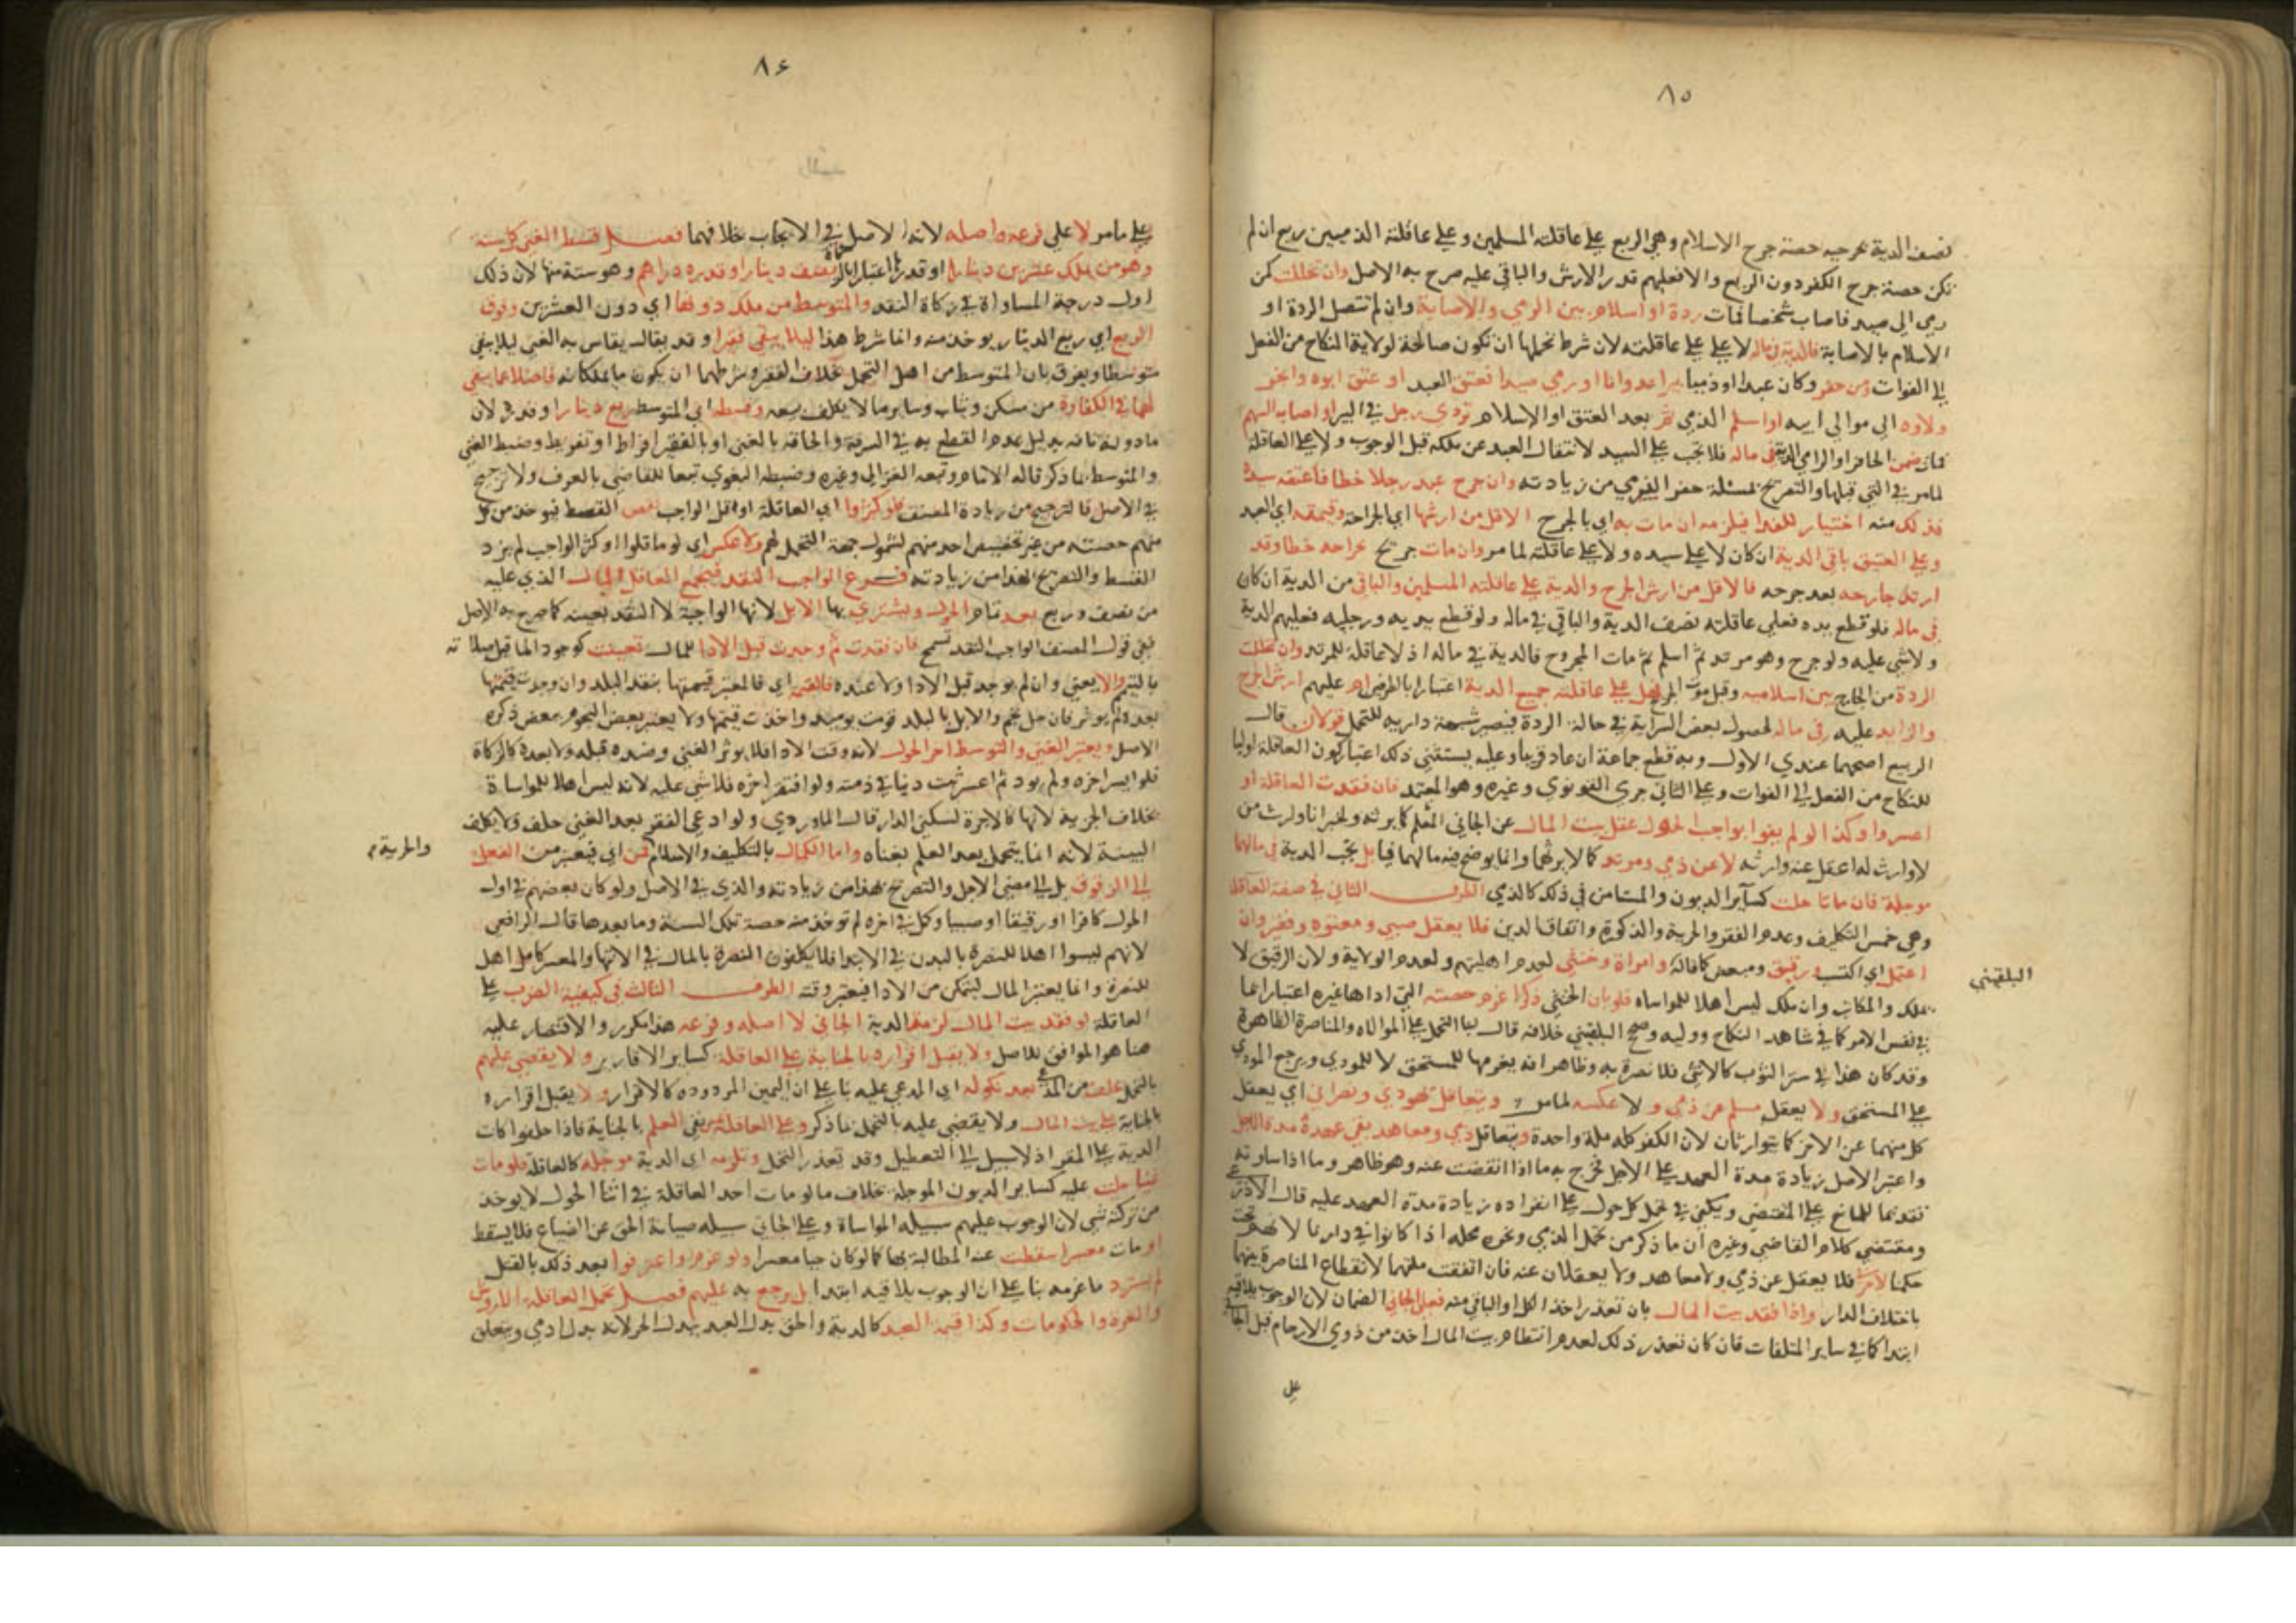 ٨٥
نصف الدية بجرحيه حصة جرح الاسلام وهي الربع علي عاقلته المسلمين وعلي عاقلته الذميين ربع ان لم
تكن حصة جرح الكفر دون الربع والا فعليهم قدر الارش والباقي عليه صرح به الاصل وان تخللت كمن
رمي الى صيد فاصاب شخصا فمات ردة او اسلام بين الرمي والاصابة وان لم تتصل الردة او
الاسلام بالاصابة فالدية في ماله لا علي عاقلته لان شرط تحملها ان تكون صالحة لولاية النكاح من الفعل
الي الفوات ومن حفر وكان عبدا او ذميا بيرا عدوانا او رمي صيدا فعتق العبد او عتق ابوه وانجر
ولاوه الى موالي ابيه او اسلم الذمي ثم بعد العتق او الاسلام تردي رجل في البير او اصاب السهم
فمات ضمن الحافر او الرامي الدية في ماله فلا تجب علي السيد لانتقال العبد عن ملكه قبل الوجوب ولا علي العاقلة
لما مر في التي قبلها والتصريح بمسئلة حفر الذمي من زيادته وان جرح عبد رجلا خطا فاعتقه سيده
فذلك منه اختيار للفدا فيلزمه ان مات به اي بالجرح الاقل من ارشها اي الجراحة وقيمته اي العبد
وعلي العتيق باقي الدية ان كان لا علي سيده ولا علي عاقلته لما مر وان مات جريح بجراحه خطا وقد
ارتد جارحه بعد جرحه فالاقل من ارش الجرح والدية علي عاقلته المسلمين والباقي من الدية ان كان
في ماله فلو قطع يده فعلي عاقلته نصف الدية والباقي في ماله ولو قطع يديه ورجليه فعليهم الدية
ولا شي عليه ولو جرح وهو مرتد ثم اسلم ثم مات المجروح فالدية في ماله اذ لا عاقلة للمرتد وان تخللت
الردة من الجارح بين اسلاميه وقبل موت الجريح فهل علي عاقلته جميع الدية اعتبارا بالطرفين ام عليهم ارش الجرح
والزايد عليه في ماله لحصول بعض السراية في حالة الردة فيصير شبهة داريه للتحمل قولان قال
الربيع اصحهما عندي الاول وبه قطع جماعة ان عاد قريبا وعليه يستثني ذلك اعتبار كون العاقلة اوليا
للنكاح من الفعل الي الفوات وعلي الثاني جري النووي وغيره وهو المعتمد فان فقدت العاقلة او
اعسروا وكذا لو لم يفوا بواجب الحول عقل بيت المال عن الجاني المسلم كما يرثه ولخبر انا وارث من
لا وارث له اعقل عنه وارثه لا عن ذمي ومرتد كما لا يرثهما وانما يوضع فيه مالهما فيا بل تجب الدية في مالهما
موجلة فان ماتا حلت كساير الديون والمستامن في ذلك كالذمي الطرف الثاني في صفة العاقلة
وهي خمس التكليف وعدم الفقر والحرية والذكورة واتفاق الدين فلا يعقل صبي ومعتوه وفقير وان
اعتمل اي اكتسب ورقيق ومبعض كما قاله وامراة وخنثي لعدم اهليتهم ولعدم الولاية ولان الرقيق لا
البلقيني
يملك والمكاتب وان ملك ليس اهلا للمواساه فلو بان الخنثي ذكرا غرم حصته التي اداها غيره اعتبارا بما
في نفس الامر كما في شاهد النكاح ووليه وصحح البلقيني خلافه قال لبنا التحمل علي الموالاه والمناصرة الظاهرة
وقد كان هذا في ستر الثوب كالانثي فلا نصرة به وظاهر انه يغرمها للمستحق لا للمودي ويرجع المودي
علي المستحق ولا يعقل مسلم عن ذمي ولا عكسه لما مر ويتعاقل يهودي ونصراني اي يعقل
كل منهما عن الاخر كما يتوارثان لان الكفر كله ملة واحدة ويتعاقل ذمي ومعاهد بقي عهده مدة الاجل
واعتبر الاصل زيادة مدة العهد علي الاجل فخرج به ما اذا انقضت عنه وهو ظاهر وما اذا ساوته
تقديما للمانع علي المقتضي ويكفي في تحمل كل حول علي انفراده زيادة مدة العهد عليه قال الاذرعي
ومقتضي كلام القاضي وغيره ان ما ذكر من تحمل الذمي ونحوه محله اذا كانوا في دارنا لانهم تحت
حكمنا فلا يعقل عن ذمي ولا معاهد ولا يعقلان عنه فان اتفقت ملتهما لانقطاع المناصرة بينهما
باختلاف الدار واذا فقد بيت المال بان تعذر اخذ الكل او الباقي منه فعلي الجاني الضمان لان الوجوب يلاقيه
ابتدا كما في ساير المتلفات فان كان تعذر ذلك لعدم انتظام بيت المال اخذ من ذوي الارحام قبل الجاني
علي
٨٤
علي ما مر لا علي فرعه واصله لانه الاصل في الايجاب خلافهما فصل قسط الغني كل سنة
وهو من ملك عشرين دينارا او قدرها اعتبارا بالزكاة نصف دينار او قدره دراهم وهو ستة منها لان ذلك
اول درجة المساواة في زكاة النقد والمتوسط من ملك دونها اي دون العشرين وفوق
الربع اي ربع الدينار يوخذ منه وانما شرط هذا ليلا يبقي فقيرا وقد يقال يقاس به الغني ليلا يبقي
متوسطا ويفرق بان المتوسط من اهل التحمل بخلاف الفقير وشرطهما ان يكون ما يملكانه فاضلا عما يبقي
لهما في الكفارة من مسكن وثياب وساير ما لا يكلف بيعه وقسطه اي المتوسط ربع دينار او قدره لان
ما دونه تافه بدليل عدم القطع به في السرقة والحاقه بالغني او بالفقير افراط او تفريط وضبط الغني
والمتوسط بما ذكر قاله الامام وتبعه الغزالي وغيره وضبطه البغوي تبعا للقاضي بالعرف ولا ترجيح
في الاصل فالترجيح من زيادة المصنف فلو كثروا اي العاقلة او قل الواجب نقص القسط فيوخذ من كل
منهم حصته من غير تخصيص احد منهم لشمول جهة التحمل لهم ولا عكس اي لو ما قلوا او كثر الواجب لم يزد
القسط والتصريح بهذا من زيادته فرع الواجب النقد فيجمع العاقل المال الذي عليه
من نصف وربع بعد تمام الحول ويشتري بها الابل لانها الواجبة لا النقد بعينه كما صرح به الاصل
ففي قول المصنف الواجب النقد تسمح فان فقدت ثم وجدت قبل الادا للمال تعينت كوجود الما قبل صلاته
بالتيمم والا يعني وان لم يوجد قبل الادا ولا عنده فالقيمة اي فالمعتبر قيمتها بنقد البلد وان وجدت قيمتها
بعد ولم يوثر فان حل نجم والابل بالبلد قومت يوميذ واخذت قيمتها ولا يعتبر بعض النجوم ببعض ذكره
الاصل ويعتبر الغني والتوسط اخر الحول لانه وقت الادا فلا يوثر الغني وضده قبله ولا بعده كالزكاة
فلو ايسر اخره ولم يود ثم اعسر ثبت دينا في ذمته ولو افتقر اخره فلا شي عليه لانه ليس اهلا للمواساة
بخلاف الجزية لانها كالاجرة لسكني الدار قال الماوردي ولو ادعي الفقر بعد الغني حلف ولا يكلف
البينة لانه انما يتحمل بعد العلم بغناه واما الكمال بالتكليف والاسلام فمن اي فيعتبر من الفعل
والحرية
الي الزهوق بل الي مضي الاجل والتصريح بهذا من زيادته والذي في الاصل ولو كان بعضهم في اول
الحول كافرا او رقيقا او صبيا وكمل في اخره لم توخذ منه حصة تلك السنة وما بعدها قال الرافعي
لانهم ليسوا اهلا للنصرة بالبدن في الابتدا فلا يكلفون النصرة بالمال في الانتها والمعسر كامل اهل
للنصرة وانما يعتبر المال ليتمكن من الادا فيعتبر وقته الطرف الثالث في كيفية الضرب علي
العاقلة لو فقد بيت المال لزمت الدية الجاني لا اصله وفرعه هذا مكرر والاقتصار عليه
هنا هو الموافق للاصل ولا يقبل اقراره بالجناية علي العاقلة كساير الاقارير ولا يقضي عليهم
بالتحمل بحلف من المدعي بعد نكوله اي المدعي عليه بنا علي ان اليمين المردودة كالاقرار ولا يقبل اقراره
بالجناية علي بيت المال ولا يقضي عليه بالتحمل بما ذكر وعلي العاقلة يمين نفي العلم بالجناية فاذا حلفوا كانت
الدية علي المقر اذ لا سبيل الي التعطيل وقد تعذر التحمل وتلزمه اي الدية موجلة كالعاقلة فلو مات
فيها حلت عليه كساير الديون الموجلة بخلاف ما لو مات احد العاقلة في اثنا الحول لا يوخذ
من تركته شي لان الوجوب عليهم سبيله المواساة وعلي الجاني سبيله صيانة الحق عن الضياع فلا يسقط
او مات معسرا سقطت عنه المطالبة بها كما لو كان حيا معسرا ولو غرم واعترفوا بعد ذلك بالقتل
لم يسترد ما غرمه بنا علي ان الوجوب يلاقيه ابتدا بل يرجع به عليهم فصل تحمل العاقلة الاروش
والغرة والحكومات وكذا قيمة العبد كالدية والحق بدل العبد ببدل الحر لانه بدل ادمي ويتعلق